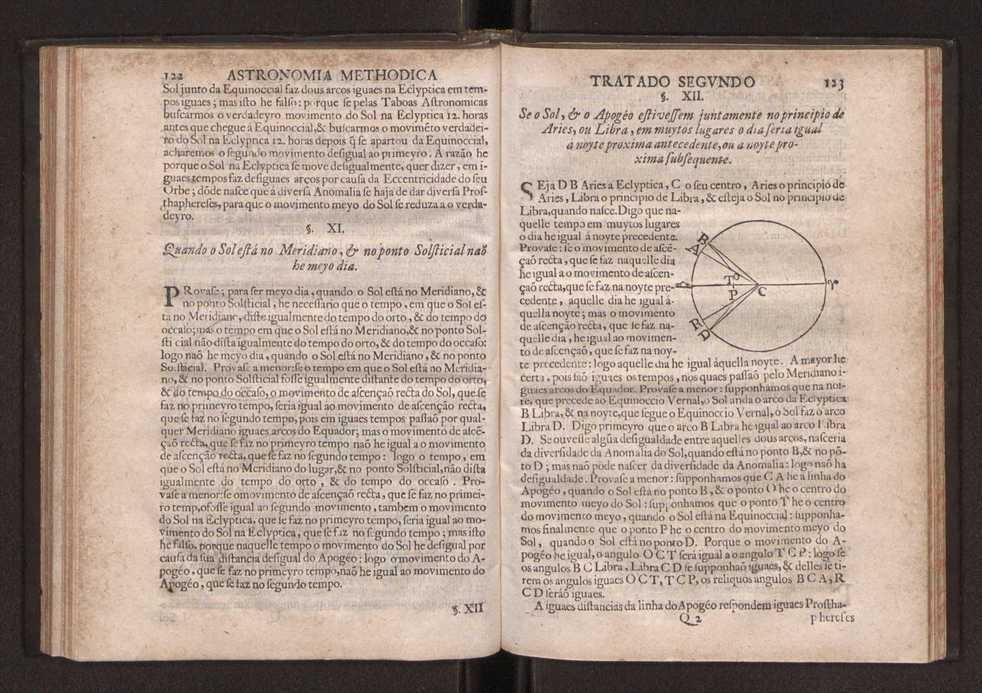 122 ASTRONOMIA METHODICA
Sol junto da Equinoccial faz dous arcos iguaes na Eclyptica em tem-
pos iguaes; mas isto he falso: porque se pelas Taboas Astronomicas
buscarmos o verdadeyro movimento do Sol na Eclyptica 12. horas
antes que chegue à Equinoccial, & buscarmos o movimẽto verdadei-
ro do Sol na Eclyptica 12. horas depois q̃ se apartou da Equinoccial,
acharemos o segundo movimento desigual ao primeyro. A razão he
porque o Sol na Eclyptica se move desigualmente, quer dizer, em i-
guaes tempos faz desiguaes arcos por causa da Eccentricidade do seu
Orbe; dõde nasce que à diversa Anomalia se haja de dar diversa Pros-
thaphereses, para que o movimento meyo do Sol se reduza a o verda-
deyro.
§. XI.
Quando o Sol está no Meridiano, & no ponto Solsticial naõ
he meyo dia.
PRovase; para ser meyo dia, quando o Sol está no Meridiano, &
no ponto Solsticial, he necessario que o tempo, em que o Sol es-
ta no Meridiano, diste igualmente do tempo do orto, & do tempo do
occaso; mas o tempo em que o Sol está no Meridiano, & no ponto Sol-
sticial não dista igualmente do tempo do orto, & do tempo do occaso:
logo naõ he meyo dia, quando o Sol está no Meridiano, & no ponto
Solsticial. Provase a menor: se o tempo em que o Sol está no Meridia-
no, & no ponto Solsticial fosse igualmente distante do tempo do orto,
& do tempo do occaso, o movimento de ascenção recta do Sol, que se
faz no primeyro tempo, seria igual ao movimento de ascenção recta,
que se faz no segundo tempo, pois em iguaes tempos passaõ por qual-
quer Meridiano iguaes arcos do Equador; mas o movimento de ascẽ-
çaõ recta, que se faz no primeyro tempo naõ he igual a o movimento
de ascenção recta, que se faz no segundo tempo: logo o tempo, em
que o Sol está no Meridiano do lugar, & no ponto Solsticial, não dista
igualmente do tempo do orto, & do tempo do occaso. Pro-
vase a menor: se o movimento de ascenção recta, que se faz no primei-
ro tempo, fosse igual ao segundo movimento, tambem o movimento
do Sol na Eclyptica, que se faz no primeyro tempo, seria igual ao mo-
vimento do Sol na Eclyptica, que se faz no segundo tempo; mas isto
he falso, porque naquelle tempo o movimento do Sol he desigual por
causa da sua distancia desigual do Apogéo: logo o movimento do A-
pogéo, que se faz no primeyro tempo, naõ he igual ao movimento do
Apogéo, que se faz no segundo tempo.
§. XII
TRATADO SEGVNDO 123
§. XII.
Se o Sol, & o Apogèo estivessem juntamente no principio de
Aries, ou Libra, em muytos lugares o dia seria igual
á noyte proxima antecedente, ou a noyte pro-
xima subsequente.
SEja D B Aries a Eclyptica, C o seu centro, Aries o principio de
Aries, Libra o principio de Libra, & esteja o Sol no principio de
Libra, quando nasce. Digo que na-
quelle tempo em muytos lugares
o dia he igual á noyte precedente.
Provase: se o movimento de ascẽ-
çaõ recta, que se faz naquelle dia
he igual a o movimento de ascen-
çaõ recta, que se faz na noyte pre-
cedente, aquelle dia he igual á-
quella noyte; mas o movimento
de ascenção recta, que se faz na-
quelle dia, he igual ao movimen-
to de ascenção, que se faz na noy-
te precedente: logo aquelle dia he igual àquella noyte. A mayor he
certa, pois saõ iguaes os tempos, nos quaes passaõ pelo Meridiano i-
guaes arcos do Equador. Provase a menor: supponhamos que na noi-
te, que precede ao Equinoccio Vernal, o Sol anda o arco da Eclyptica
B Libra, & na noyte, que segue o Equinoccio Vernal, o Sol faz o arco
Libra D. Digo primeyro que o arco B Libra he igual ao arco Libra
D. Se ouvesse algũa desigualdade entre aquelles dous arcos, nasceria
da diversidade da Anomalia do Sol, quando està no ponto B, & no põ-
to D; mas naõ pòde nascer da diversidade da Anomalia: logo naõ ha
desigualdade. Provase a menor: supponhamos que C A he a linha do
Apogéo, quando o Sol está no ponto B, & o ponto O he o centro do
movimento meyo do Sol: supponhamos que o ponto T he o centro
do movimento meyo, quando o Sol está na Equinoccial: supponha-
mos finalmente que o ponto P he o centro do movimento meyo do
Sol, quando o Sol está no ponto D. Porque o movimento do A-
pogéo he igual, o angulo O C T será igual a o angulo T C P: logo se
os angulos B C Libra, Libra C D se supponhaõ iguaes, & delles se ti-
rem os angulos iguaes O C T, T C P, os reliquos angulos B C A, R
C D seráõ iguaes.
A iguaes distancias da linha do Apogéo respondem iguaes Prostha-
Q 2 phereses
B
A
T
O
P
C
♎
♈
R
D